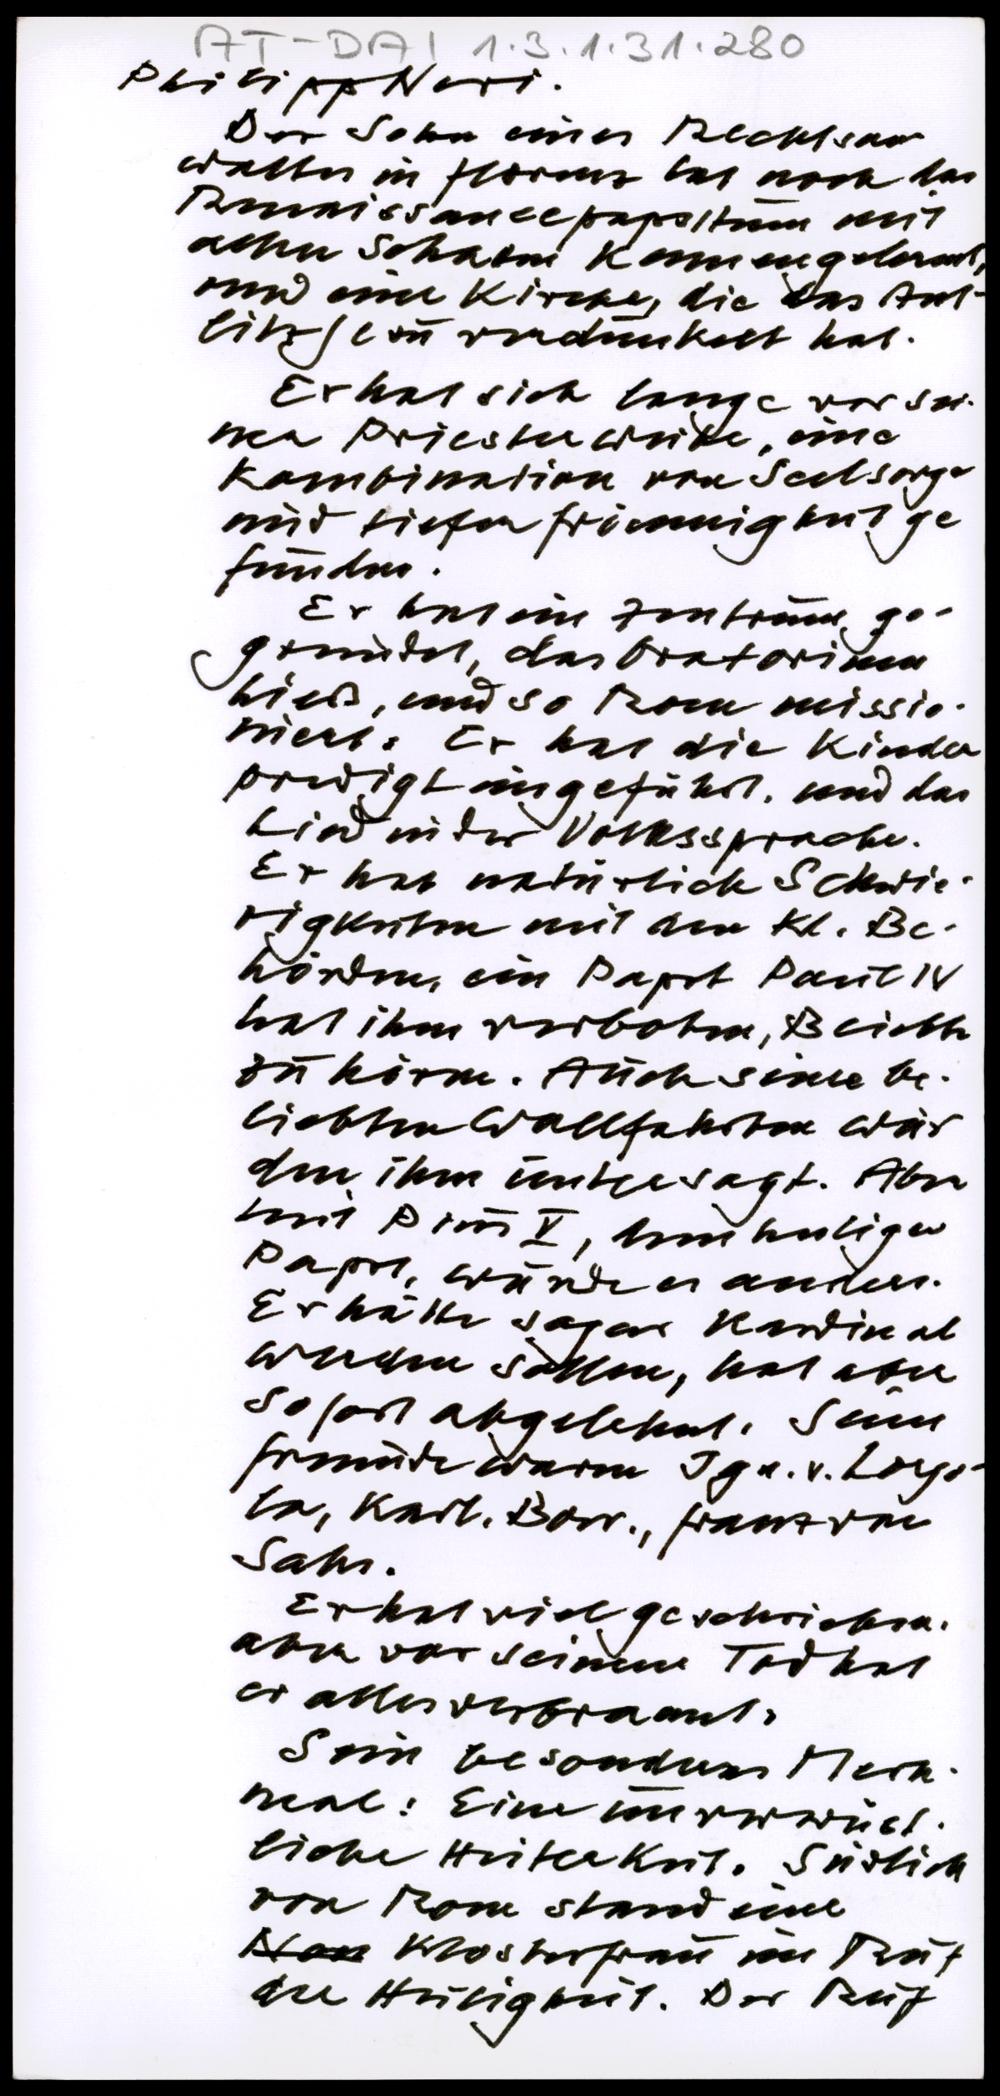 AT-DAI 1.3.1.31.280
Philipp Neri.
Der Sohn eines Rechtsan
waltes in Florenz hat noch das
Renaissancepapsttum mit
allen Schatten kennengelernt,
und eine Kirche, die das Ant-
litz Jesu verdunkelt hat.
Er hat sich lange vor sei-
ner Priesterweihe, eine
Kombination von Seelsorge
und tiefer Frömmigkeit ge
funden.
Er hat ein Zentrum ge-
gründet, das Oratorium
hieß, und so Rom missio-
niert. Er hat die Kinder
predigt eingeführt. und das
Lied in der Volkssprache.
Er hat natürlich Schwie-
rigkeiten mit den Kl. Be-
hörden, ein Papst Paul IV
hat ihm verboten, Beichte
zu hören. Auch seine be-
liebten Wallfahrten wur
den ihm untersagt. Aber
mit Pius V, dem heiligen
Papst, wurde es anders.
Er hätte sogar Kardinal
werden sollen, hat aber
sofort abgelehnt. Seine
Freunde waren Ign. v. Loyo-
la, Karl. Borr., Franz von
Sales.
Er hat viel geschrieben.
aber vor seinem Tod hat
er alles verbrannt.
Sein besonderes Merk-
mal: Eine unverwüst-
liche Heiterkeit. Südlich
von Rom stand eine
Non Klosterfrau im Ruf
der Heiligkeit. Der Ruf